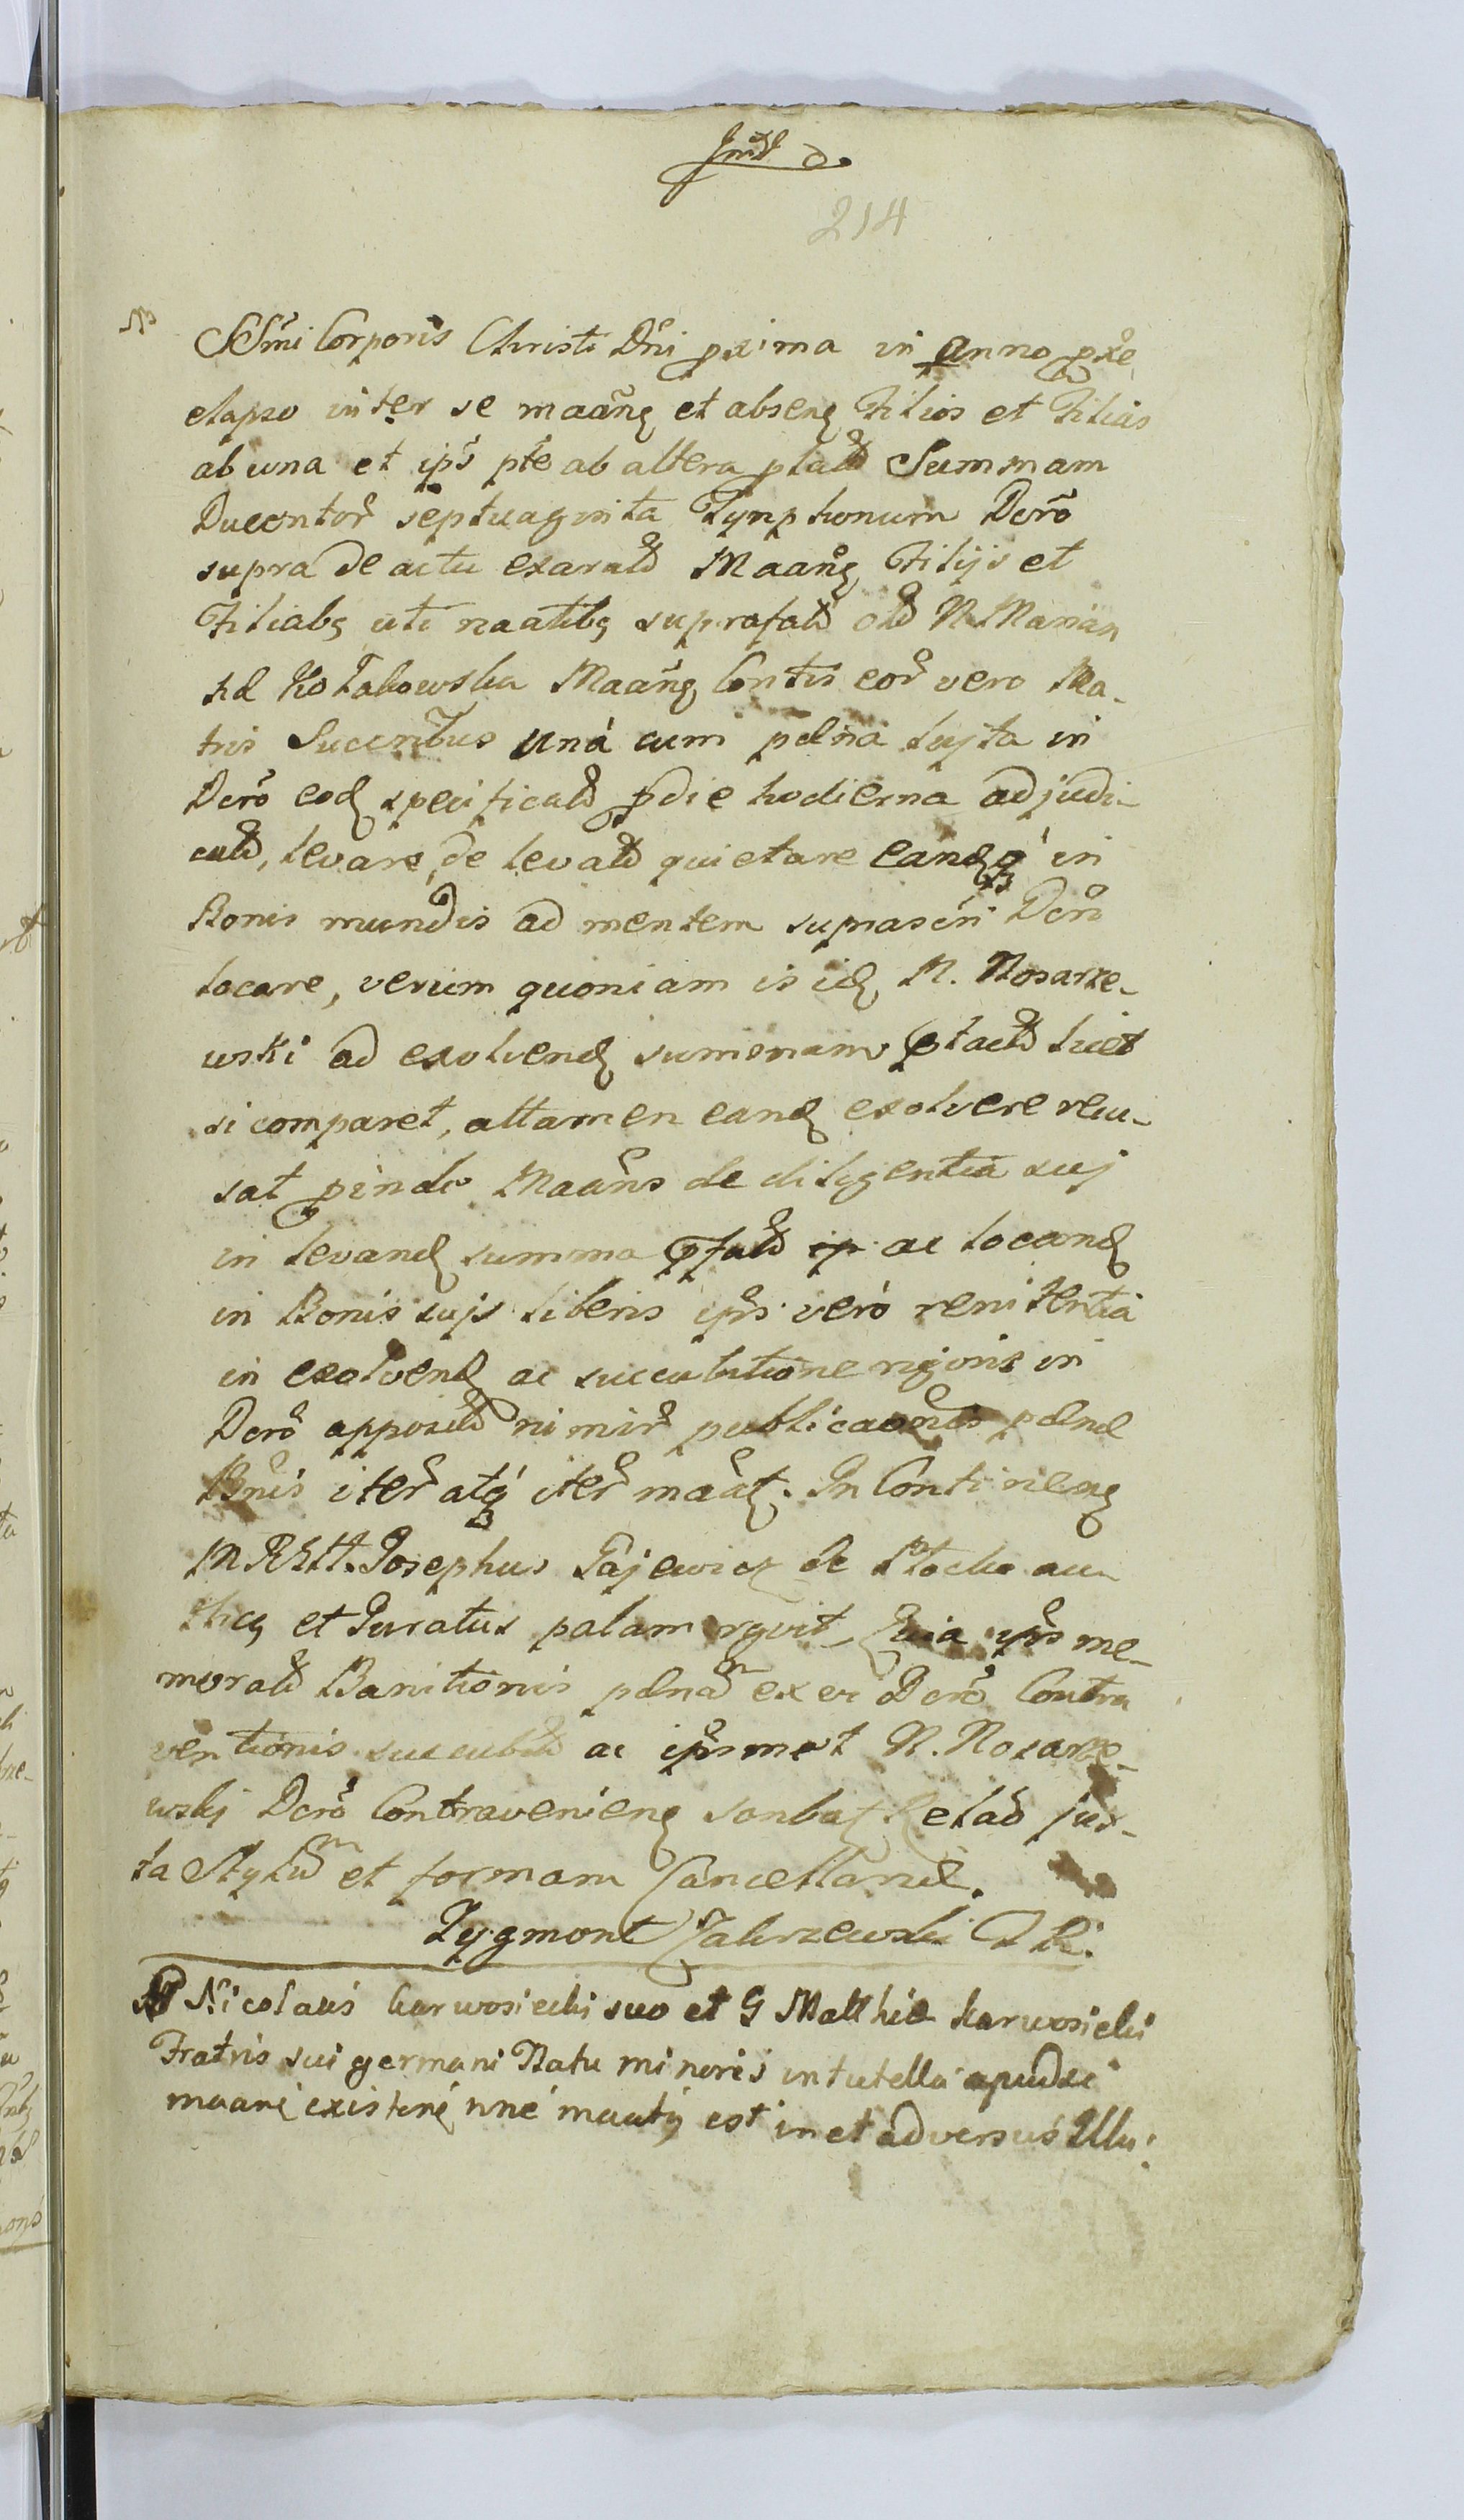 214
SSmi Corporis Christi Dni pxima in anno pxe
elapso inter se maañ et absen Filios et Filias
ab una et ips pte ab altera ptatt Summam
Ducentor septuaginta Tynphonum Dcro
supra de actu exaratt Maañ Filijs et
Filiab uti naatib suprafatt olt N. Marian
næ Kotakowska Maañ Contis eor vero Ma-
tris Succentbus unà cum pælna lujta in
Dcro eod specificatt p die hodierna adjudi-
catt, levare, de levatt quietare eandq in
Bonis mundis ad mentem suprascri Dcri
locare, verùm quoniam is id N. Nosarze-
wski ad exolvend summam ptactt licet
si comparet, attamen eand exolvere recu-
sat pinde Maans de diligentia suj
in levand summa pfatt ac locand
in Bonis sujs liberis ips verò renitentia
in exolvend ac succubitione rigoris in
Dcro apposit nimir publicaonis pælnæ
Bnis iter atq iter maat. In Continen
M RSM. Josephus Gajewicz de Plocko au-
thq et Juratus palam rqvit, Quia ips me-
moratt Banitionis pælnam ex vi Dcri Contra
ventionis succubitt ac ipsmet N. Nosarze-
wskj Dcro Contravenien
ta Stylum et formam Cancellariæ.
Zygmont Zakrzewski
Nicolaus Karwosiecki suo et G Matthiæ Karwosiecki
Fratris sui germani Natu minoris in tutella apud se
maane existene nne maatq est in et adversus Illu: